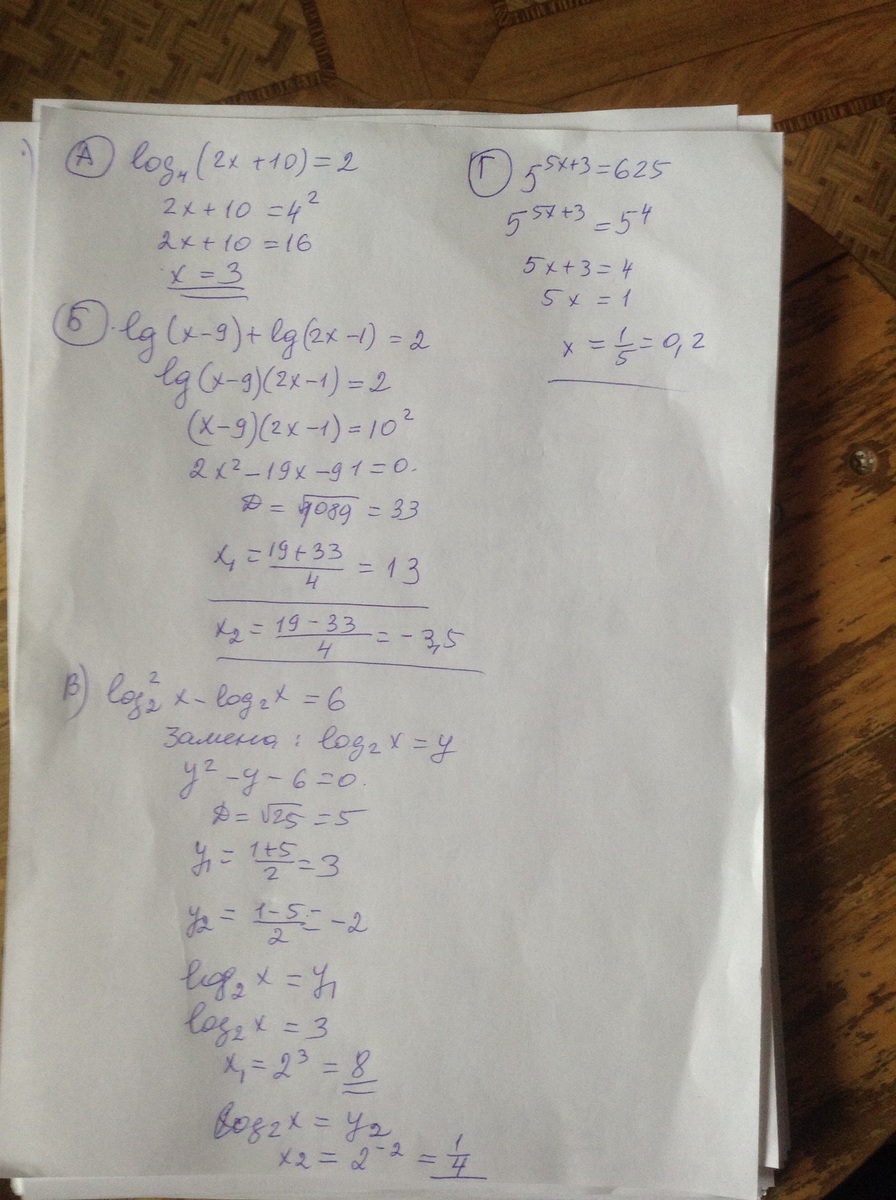 А) log₄(2x+10)=2
2x+10=4²
2x+10=16
x=3
Б) lg(x-9)+lg(2x-1)=2
lg(x-9)(2x-1)=2
(x-9)(2x-1)=10²
2x²-19x-91=0.
D=√1089=33
x₁=(19+33)/4=13
x₂=(19-33)/4=-3,5
В) log₂²x-log₂x=6
Замена: log₂x=y
y²-y-6=0.
D=√25=5
y₁=(1+5)/2=3
y₂=(1-5)/2=-2
log₂x=y₁
log₂x=3
x₁=2³=8
log₂x=y₂
x₂=2⁻²=1/4
Г) 5⁵ˣ⁺³=625
5⁵ˣ⁺³=5⁴
5x+3=4
5x=1
x=1/5=0,2